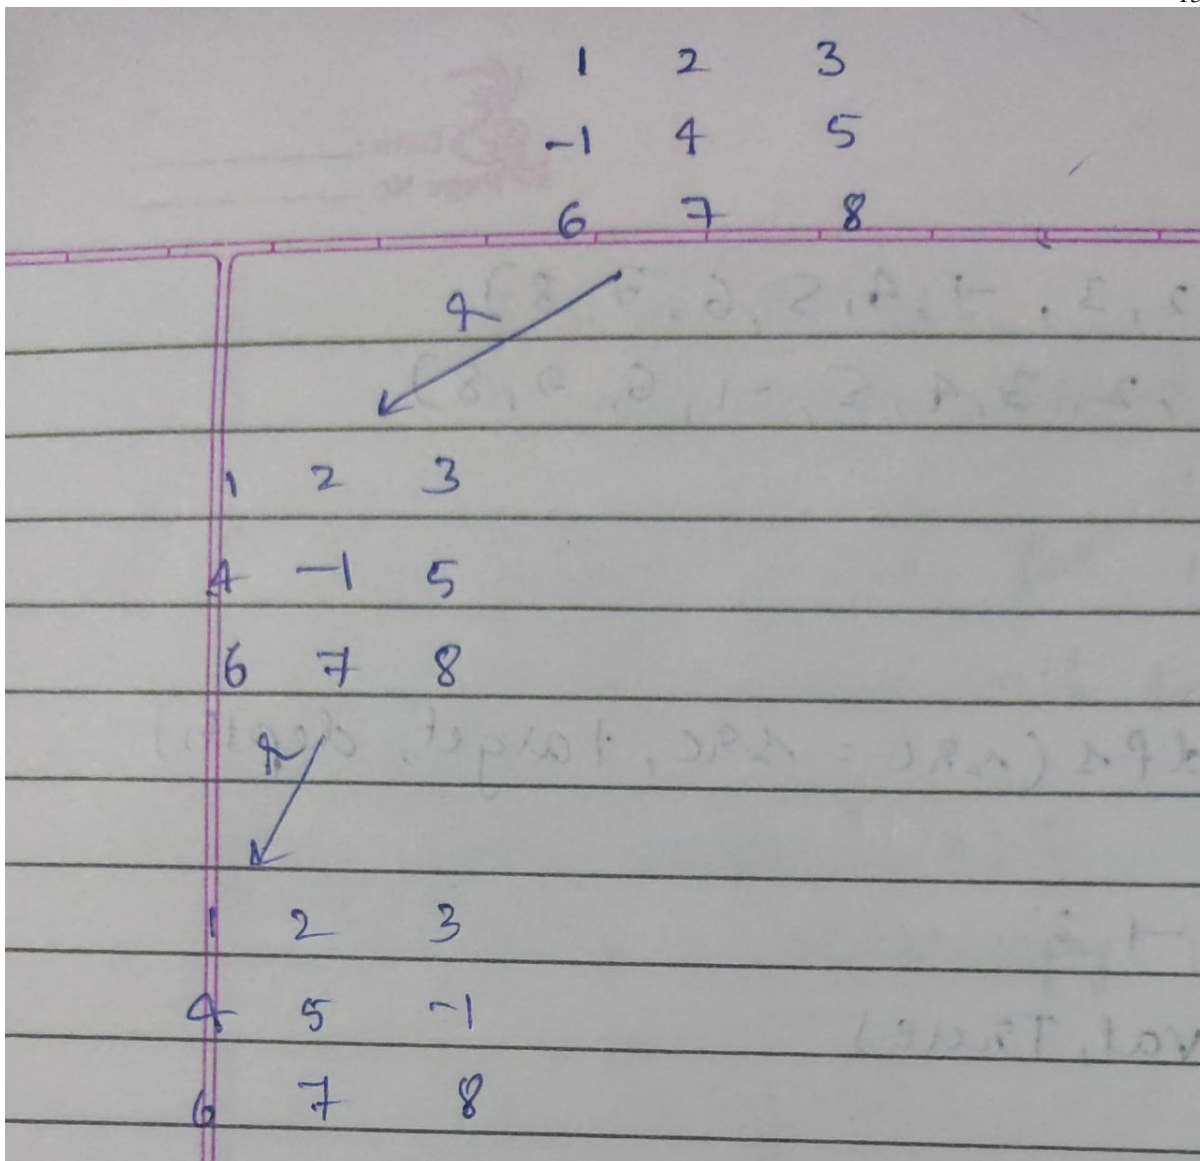 1 2 3
-1 4 5
6 7 8
r
1 2 3
4 -1 5
6 7 8
r
1 2 3
4 5 -1
6 7 8